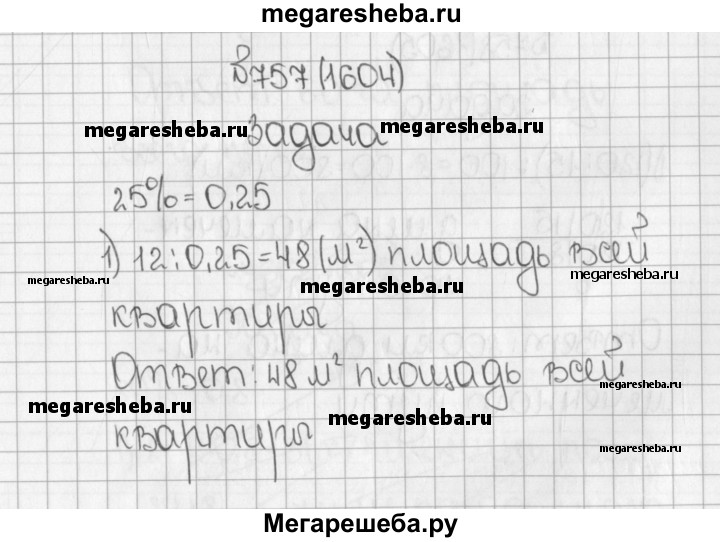 megaresheba.ru
№757(1604)
megaresheba.ru задача megaresheba.ru
25%=0,25
1) 12:0,25=48(м²) площадь всей
megaresheba.ru megaresheba.ru megaresheba.ru
квартиры
Ответ: 48 м² площадь всей
megaresheba.ru
megaresheba.ru квартиры megaresheba.ru
megaresheba.ru
Мегарешеба.ру